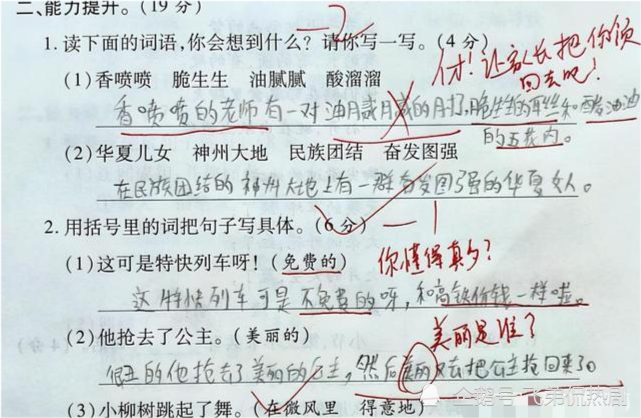 二、能力提升。(19分)
1.读下面的词语,你会想到什么?请你写一写。(4分)
(1)香喷喷 脆生生 油腻腻 酸溜溜
让家长把你领回去吧!
香喷喷的老师有一对油腻腻的
(2)华夏儿女 神州大地 民族团结 奋发图强
在民族团结的神州大地上有一群奋发图强的华夏女人。
2.用括号里的词把句子写具体。(6分) 一1
(1)这可是特快列车呀!(免费的) 你懂得真多?
这特快列车可是不免费的呀,和高铁价钱一样啦。
(2)他抢去了公主。(美丽的) 美丽是谁?
的他抢去了美丽的公主,然后美丽又去把公主抢回来了。
(3)小柳树跳起了舞。(在微风里 得意地)
企鹅号 飞弟侃热剧